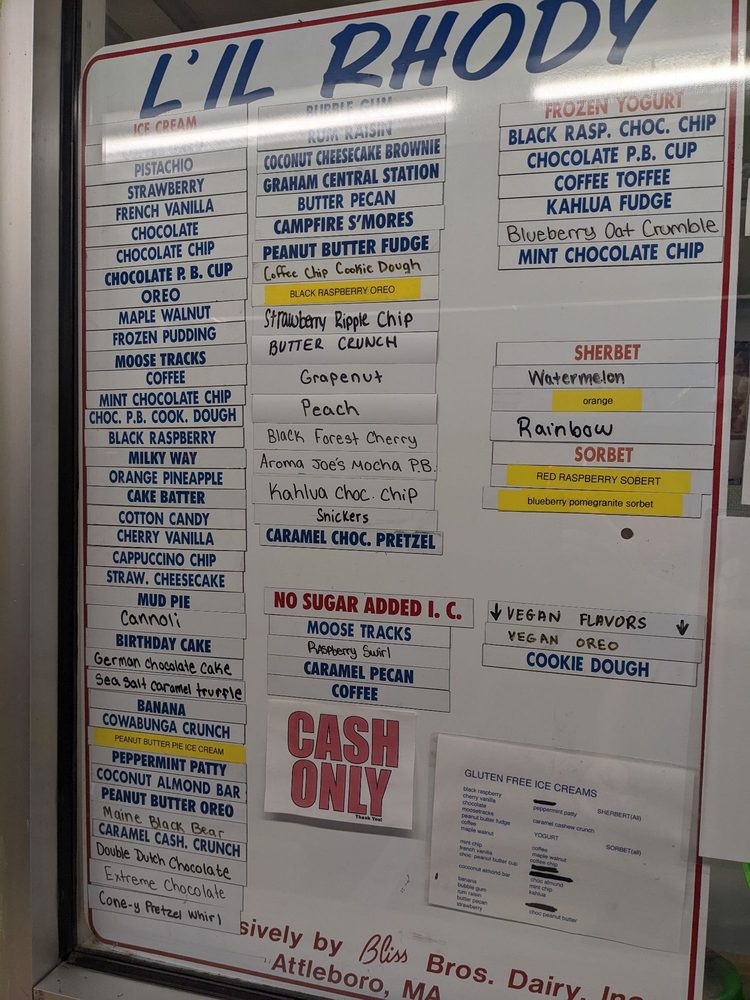 L'IL RHODY
ICE CREAM
PISTACHIO
STRAWBERRY
FRENCH VANILLA
CHOCOLATE
CHOCOLATE CHIP
CHOCOLATE P. B. CUP
OREO
MAPLE WALNUT
FROZEN PUDDING
MOOSE TRACKS
COFFEE
MINT CHOCOLATE CHIP
CHOC. P.B. COOK. DOUGH
BLACK RASPBERRY
MILKY WAY
ORANGE PINEAPPLE
CAKE BATTER
COTTON CANDY
CHERRY VANILLA
CAPPUCCINO CHIP
STRAW. CHEESECAKE
MUD PIE
Cannoli
BIRTHDAY CAKE
German chocolate cake
Sea salt caramel truffle
BANANA
COWABUNGA CRUNCH
PEANUT BUTTER PIE ICE CREAM
PEPPERMINT PATTY
COCONUT ALMOND BAR
PEANUT BUTTER OREO
Maine Black Bear
CARAMEL CASH. CRUNCH
Double Dutch Chocolate
Extreme Chocolate
Cone-y Pretzel Whirl
BUBBLE GUM
RUM RAISIN
COCONUT CHEESECAKE BROWNIE
GRAHAM CENTRAL STATION
BUTTER PECAN
CAMPFIRE S'MORES
PEANUT BUTTER FUDGE
Coffee Chip Cookie Dough
BLACK RASPBERRY OREO
Strawberry Ripple Chip
BUTTER CRUNCH
Grapenut
Peach
Black Forest Cherry
Aroma Joe's Mocha P.B.
Kahlua Choc. Chip
Snickers
CARAMEL CHOC. PRETZEL
NO SUGAR ADDED I. C.
MOOSE TRACKS
Raspberry Swirl
CARAMEL PECAN
COFFEE
CASH
ONLY
Thank You!
FROZEN YOGURT
BLACK RASP. CHOC. CHIP
CHOCOLATE P.B. CUP
COFFEE TOFFEE
KAHLUA FUDGE
Blueberry Oat Crumble
MINT CHOCOLATE CHIP
SHERBET
Watermelon
orange
Rainbow
SORBET
RED RASPBERRY SOBERT
blueberry pomegranite sorbet
↓ VEGAN FLAVORS ↓
VEGAN OREO
COOKIE DOUGH
GLUTEN FREE ICE CREAMS
black raspberry
cherry vanilla
chocolate
moosetracks
peanut butter fudge
coffee
maple walnut
mint chip
french vanilla
choc. peanut butter cup
coconut almond bar
banana
bubble gum
rum raisin
butter pecan
strawberry
peppermint patty
caramel cashew crunch
YOGURT
coffee
maple walnut
coffee chip
choc almond
mint chip
kahlua
choc peanut butter
SHERBERT(All)
SORBET(all)
sively by Bliss Bros. Dairy, Inc
Attleboro, MA